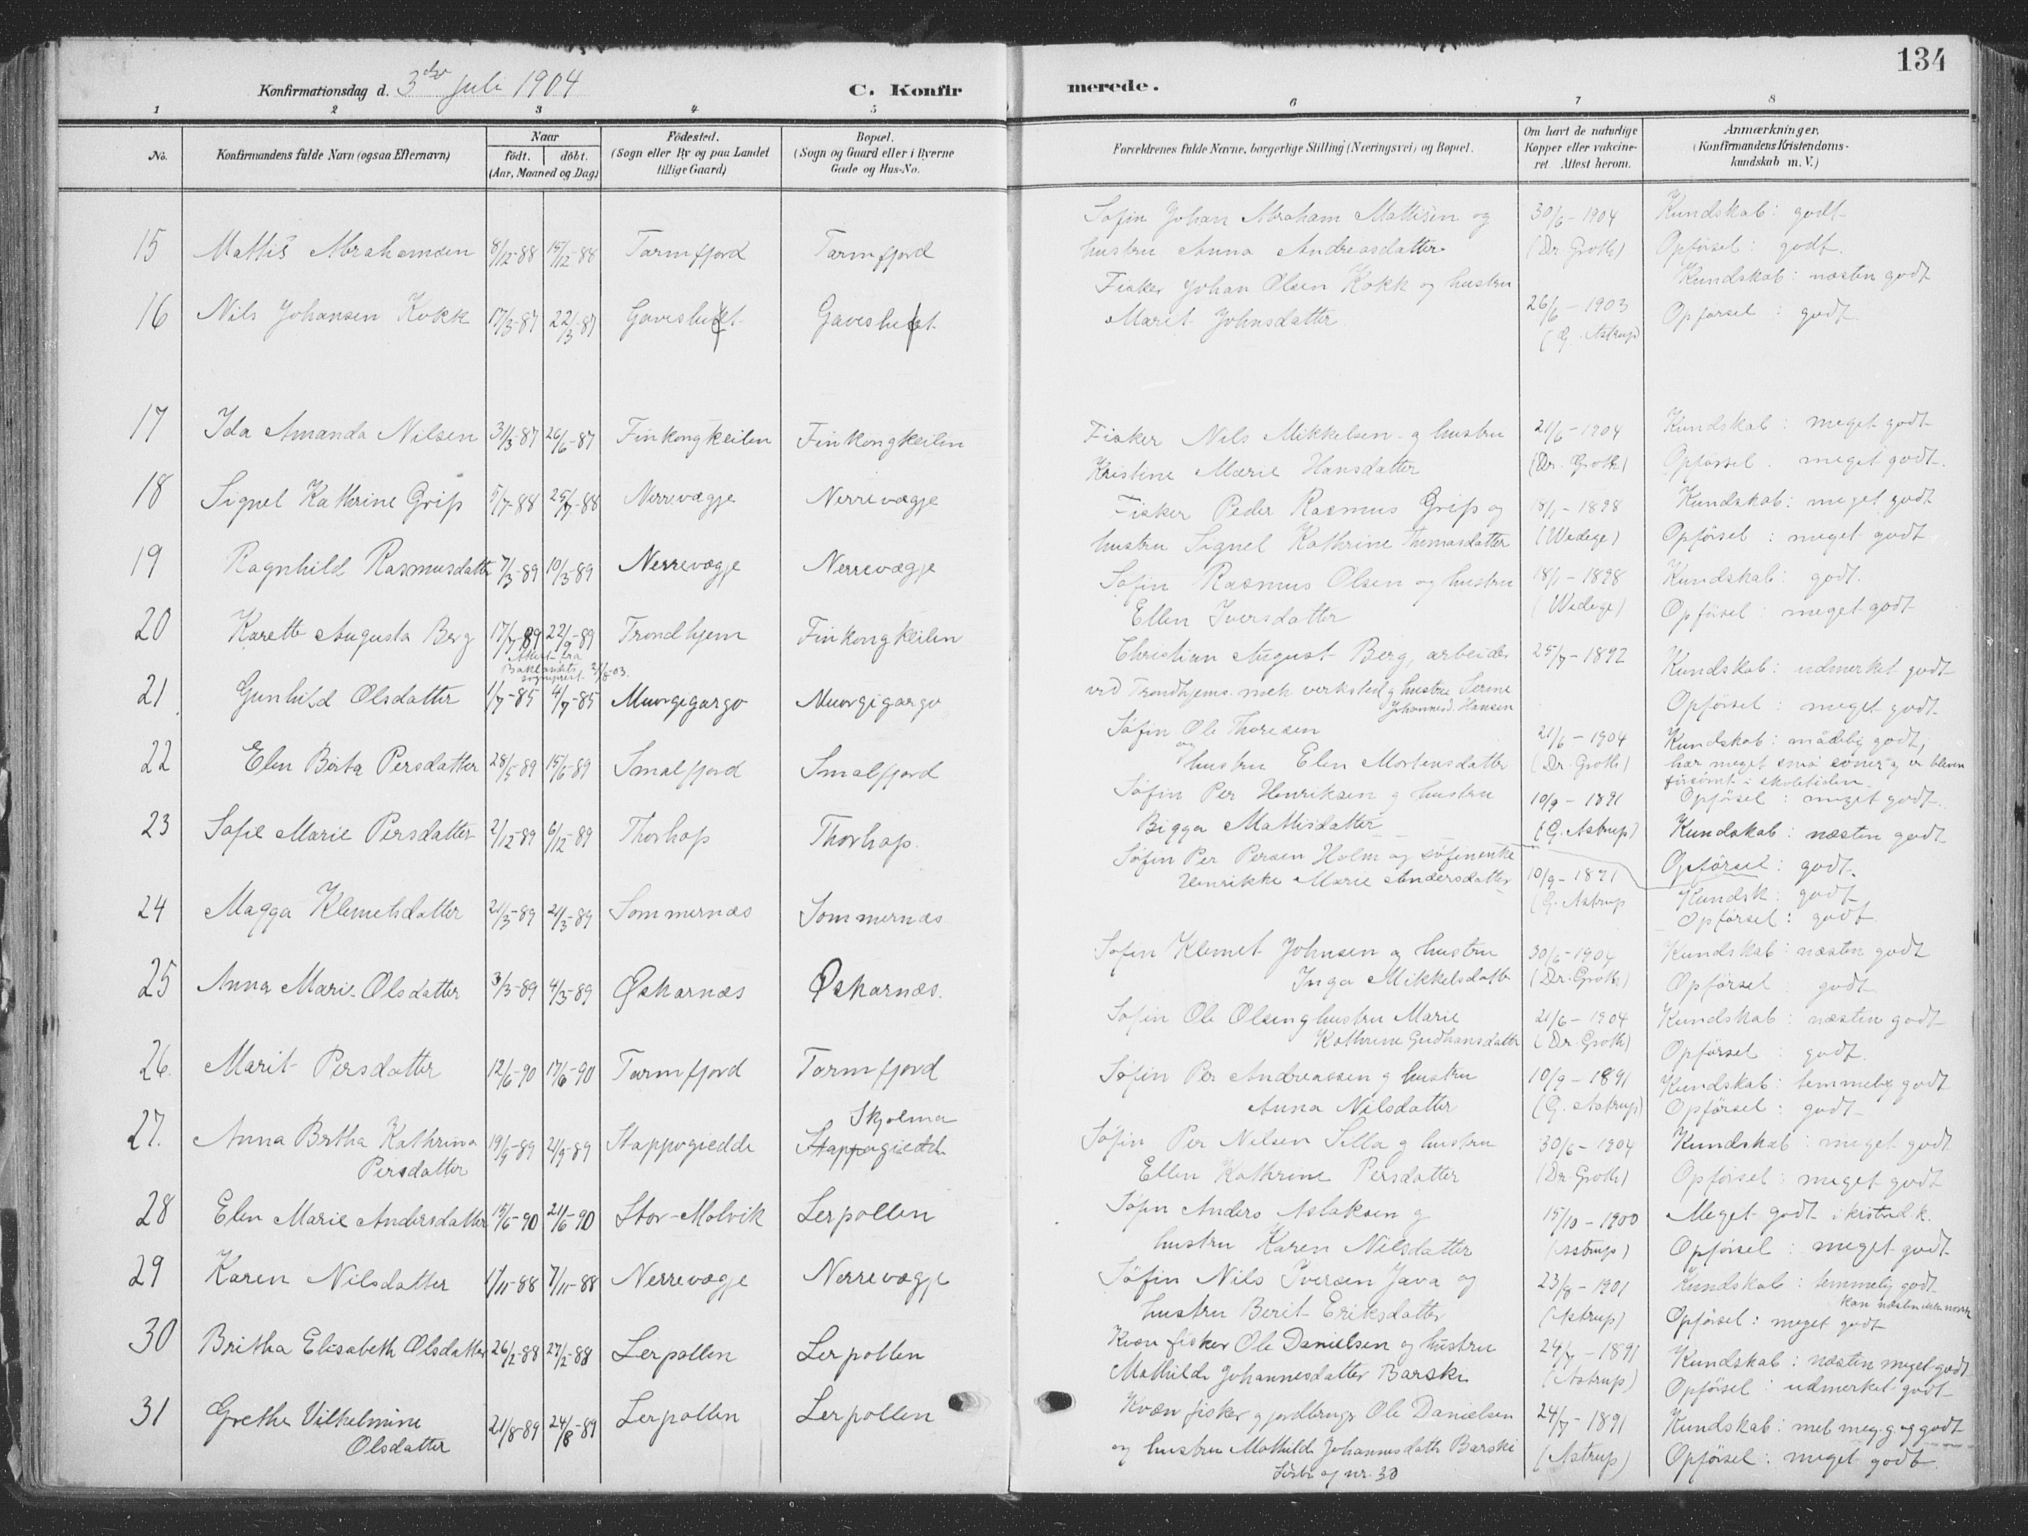 134
Konfirmationsdag d. 3die Juli 1904 C. Konfirmerede.
1 2 3 4 5 6 7 8
No. Konfirmandens fulde Navn (ogsaa Efternavn) Naar født. døbt. (Aar, Maaned og Dag) Fødested. (Sogn eller By og paa Landet tillige Gaard) Bopæl. (Sogn og Gaard eller i Byerne Gade og Hus-No. Forældrenes fulde Navne, borgerlige Stilling (Næringsvei) og Bopæl. Om havt de naturlige Kopper eller vakcineret. Attest herom. Anmærkninger, (Konfirmandens Kristendomskundskab m. V.)
15 Mattis Abrahamsen 8/12-88 15/12-88 Tarmfjord Tarmfjord Søfin Johan Abraham Mattisen og 30/6-1904 Kundskab: godt
hustru Anna Andreasdatter (Dr. Groth) Opførsel: godt.
16 Nils Johansen Kokk 17/3-87 22/3-87 Gavesluft Gavesluft Fisker Johan Olsen Kokk og hustru 26/6-1903 Kundskab: næsten godt
Marit Johnsdatter (G. Astrup) Opførsel: godt.
17 Ida Amanda Nilsen 31/3-87 26/6-87 Finkongkeilen Finkongkeilen Fisker Nils Mikkelsen og hustru 21/6-1904 Kundskab: meget godt
Kristine Marie Hansdatter (Dr. Groth) Opførsel. meget godt.
18 Signel Kathrine Grip 5/7-88 25/7-88 Nerrevægje Nerrevægje Fisker Peder Rasmus Grip og 18/1-1898 Kundskab: meget godt
hustru Signel Kathrine Thomasdatter (Wedege) Opførsel: meget godt
19 Ragnhild Rasmusdatter 7/3-89 10/3-89 Nerrevægje Nerrevægje Søfin Rasmus Olsen og hustru 18/1-1898 Kundskab: godt.
Ellen Iversdatter (Wedege) Opførsel: meget godt
20 Karette Augusta Berg 17/7-89 22/9-89 Trondhjem Finkongkeilen Christian August Berg, arbeider 25/7-1892 Kundskab: udmerket godt
Attest fra Baklandets sognepræst 21/8-03. ved Trondhjems mek verksted og hustru Serine Johannesd. Hansen Opførsel: meget godt
21 Gunhild Olsdatter 1/7-85 4/7-85 Muorgigargo Muorgigargo Søfin Ole Thoresen 21/6-1904 Kundskab: mådelig godt,
og hustru Elen Mortensdatter (Dr. Groth) har meget små evner og er bleven forsømt i skoletiden.
Opførsel: meget godt
22 Elen Berta Persdatter 28/5-89 15/6-89 Smalfjord Smalfjord Søfin Per Henriksen og hustru 10/9-1891 Kundskab: næsten godt
Bigga Mattisdatter (G. Astrup) Opførsel: godt.
23 Sofie Marie Persdatter 2/12-89 6/12-89 Thorhop Thorhop. Søfin Per Persen Holm og søfinenke 10/9-1891 Kundsk: godt
Henrikke Marie Andersdatter (G. Astrup Opførsel: godt
24 Magga Klemetsdatter 21/3-89 21/3-89 Sommernæs Sommernæs Søfin Klemet Johnsen og hustru 30/6-1904 Kundskab: næsten godt
Inga Mikkelsdatter (Dr. Groth) Opførsel: godt
25 Anna Marie Olsdatter 3/3-89 4/3-89 Øskarnæs Øskarnæs. Søfin Ole Olsen og hustru Marie 21/6-1904 Kundskab: næsten godt
Kathrine Gudhansdatter (Dr. Groth) Opførsel: godt.
26. Marit Persdatter 12/6-90 17/6-90 Tarmfjord Tarmfjord Søfin Per Andreassen og hustru 10/9-1891 Kundskab: temmelig godt
Anna Nilsdatter (G. Astrup) Opførsel: godt
27. Anna Britha Kathrina Persdatter 19/9-89 21/9-89 Stappogiedde Skjolma Stappogiedde Søfin Per Nilsen Silla og hustru 30/6-1904 Kundskab: meget godt
Ellen Kathrine Persdatter (Dr. Groth) Opførsel: meget godt
28 Elen Marie Andersdatter 15/6-90 21/6-90 Stor-Molvik Lerpollen Søfin Anders Aslaksen og 15/10-1900 Meget godt i kristend.k.
hustru Karen Nilsdatter (Astrup) Opførsel: meget godt
29 Karen Nilsdatter 1/11-88 7/11-88 Nerrevægje Nerrevægje Søfin Nils Iversen Java og 23/8-1901 Kundskab: temmelig godt
hustru Berit Eriksdatter (Astrup) kan næsten ikke norsk Opførsel: meget godt
30 Britha Elisabeth Olsdatter 26/2-88 27/2-88 Lerpollen Lerpollen Kvæn fisker Ole Danielsen og hustru 24/7-1891 Kundskab: næsten meget godt
Mathilde Johannesdatter Barski (Astrup) Opførsel: udmerket godt
31 Grethe Vilhelmine Olsdatter 21/8-89 24/8-89 Lerpollen Lerpollen Kvæn fisker og jordbruger Ole Danielsen 24/7-1891 Kundskab: mel meg. g. og godt
og hustru Mathilde Johannesdatter Barski (Astrup) Opførsel: meget godt.
Søster af nr. 30